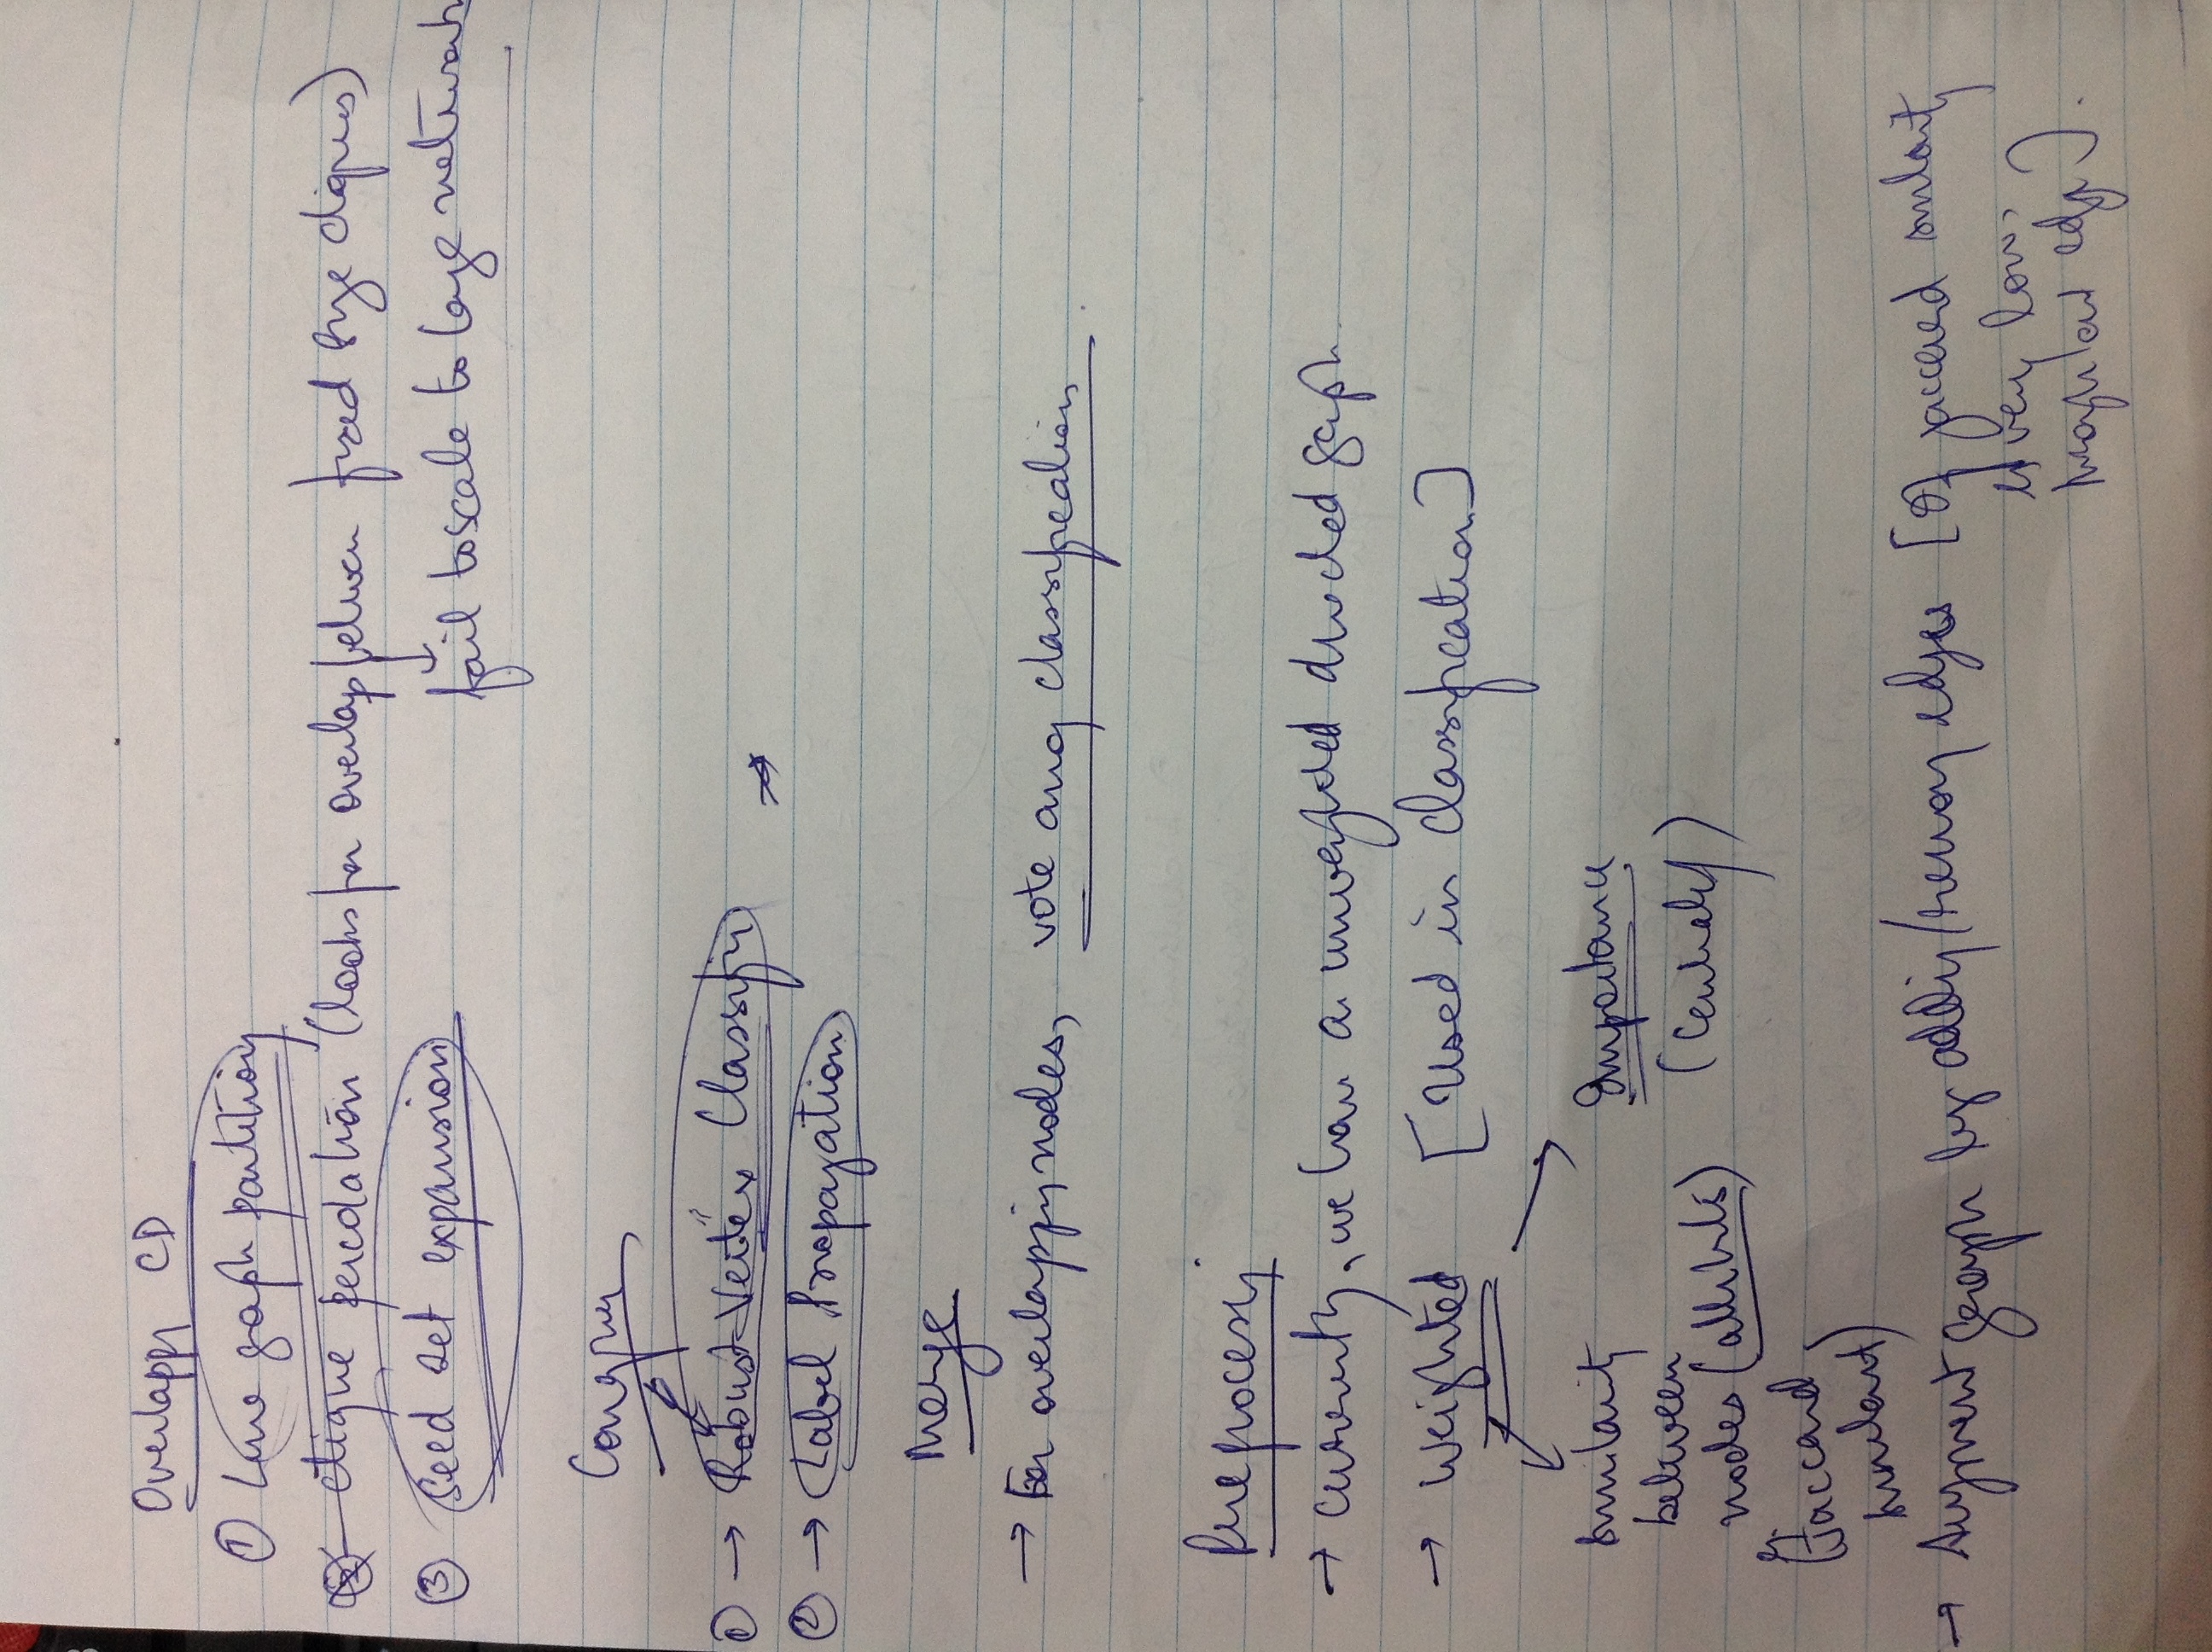 Overlappg CD
① Line graph partition
② Clique percolation (looks for overlap between fixed size cliques)
③ Seed set expansion
fail to scale to large network
Conquer
① → Robust Vertex Classifir
② → Label Propagation
Merge
→ For overlappijng nodes, vote avg classification
Preprocessg
→ Currently, we have an unweighted directed graph
→ Weighted [Used in Classification]
Similarity
between
nodes (attributes)
Importance
(Centrality)
eg.
(Jaccard
similarity)
→ Augment graph by addig/removg edges [If jaccard similarity
is very low,
edge].